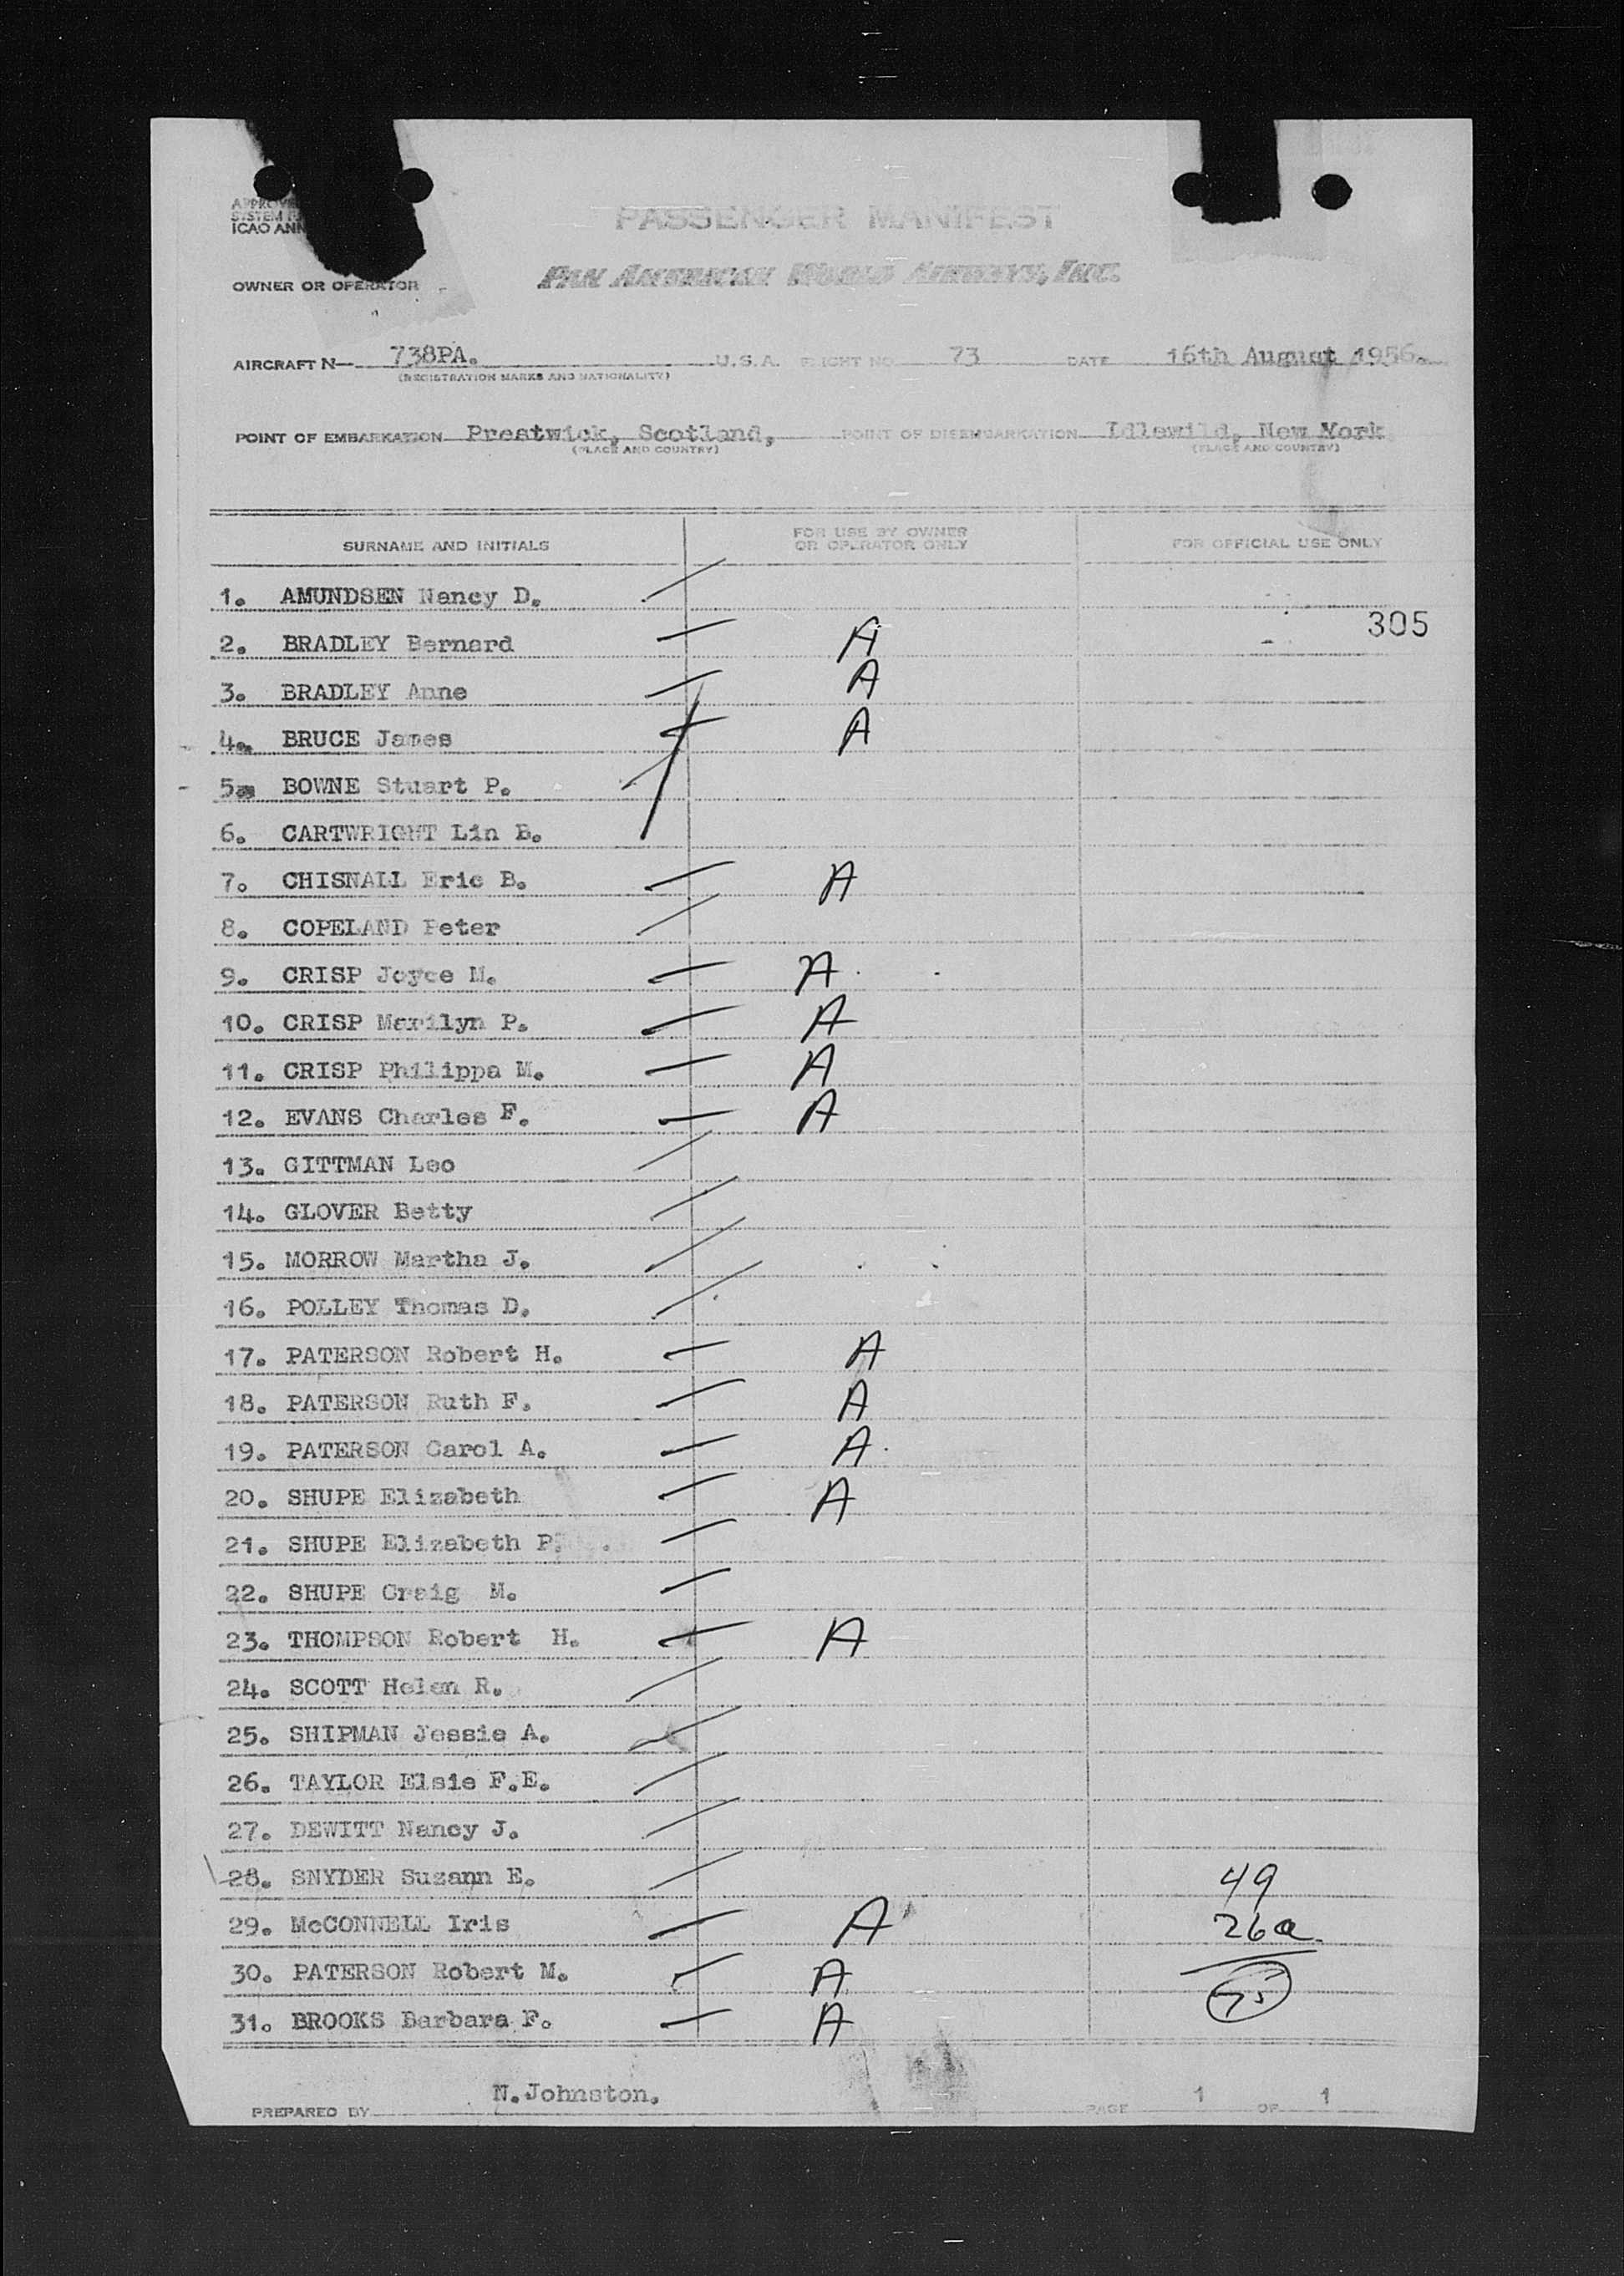 PASSENGER MANIFEST
SYSTEM
ICAO ANN
OWNER OR OPERATOR PAN AMERICAN WORLD AIRWAYS, INC.
AIRCRAFT N— 738PA. U.S.A. FLIGHT NO. 73 DATE 16th August 1956.
(REGISTRATION MARKS AND NATIONALITY)
POINT OF EMBARKATION Prestwick, Scotland, POINT OF DISEMBARKATION Idlewild, New York
(PLACE AND COUNTRY) (PLACE AND COUNTRY)
SURNAME AND INITIALS FOR USE BY OWNER OR OPERATOR ONLY FOR OFFICIAL USE ONLY
1. AMUNDSEN Nancy D.
305
2. BRADLEY Bernard A
3. BRADLEY Anne A
4. BRUCE James A
5. BOWNE Stuart P.
6. CARTWRIGHT Lin B.
7. CHISNALL Eric B. A
8. COPELAND Peter
9. CRISP Joyce M. A
10. CRISP Marilyn P. A
11. CRISP Philippa M. A
12. EVANS Charles F. A
13. GITTMAN Leo
14. GLOVER Betty
15. MORROW Martha J.
16. POLLEY Thomas D.
17. PATERSON Robert H. A
18. PATERSON Ruth F. A
19. PATERSON Carol A. A
20. SHUPE Elizabeth A
21. SHUPE Elizabeth P.
22. SHUPE Craig M.
23. THOMPSON Robert H. A
24. SCOTT Helen R.
25. SHIPMAN Jessie A.
26. TAYLOR Elsie F.E.
27. DEWITT Nancy J.
28. SNYDER Suzann E. 49
29. McCONNELL Iris A 26a
30. PATERSON Robert M. A 75
31. BROOKS Barbara F. A
N.Johnston.
PREPARED BY PAGE 1 OF 1